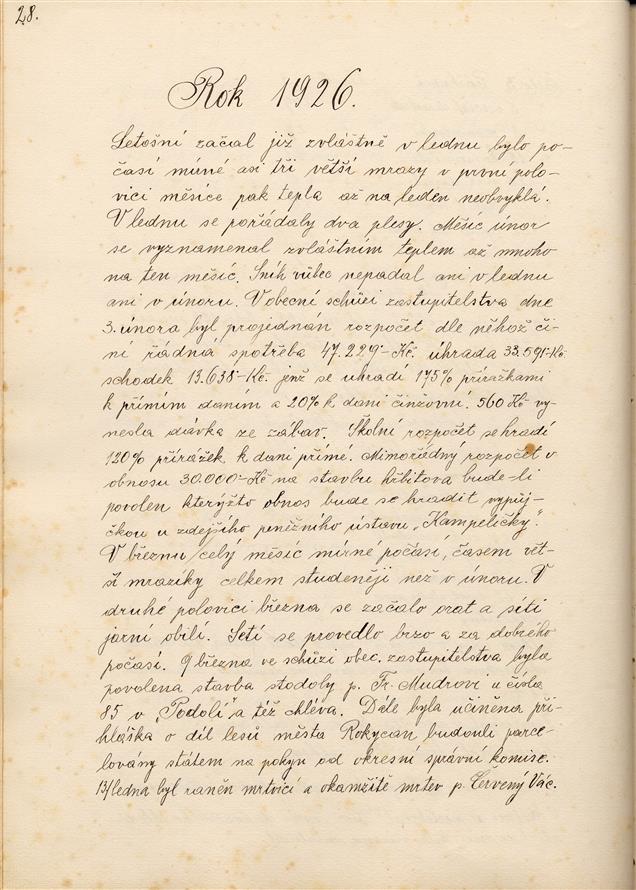 28.
Rok 1926.
Letošní začal již zvláštně v lednu bylo po-
časí mírné asi tři větší mrazy v první polo-
vici měsíce pak tepla až na leden neobvyklá.
V lednu se pořádaly dva plesy. Měsíc únor
se vyznamenal zvláštním teplem až mnoho
na ten měsíc. Sníh vůbec nepadal ani v lednu
ani v únoru. V obecní schůzi zastupitelstva dne
3. února byl projednán rozpočet dle něhož či-
ní řádná spotřeba 47.229·- Kč. úhrada 33.591·- Kč
schodek 13.638·- Kč jenž se uhradí 175% přirážkami
k přímím daním a 20% k dani činžovní. 560 Kč vy-
nesla dávka ze zábav. Školní rozpočet se hradí
120% přirážek. k dani přímé. Mimořádný rozpočet v
obnosu 30.000·- Kč na stavbu hřbitova bude-li
povolen kterýžto obnos bude se hradit vypůj-
čkou u zdejšího peněžního ústavu „Kampeličky".
V březnu celý měsíc mírné počasí, časem vět-
ší mrazíky celkem studeněji než v únoru. V
druhé polovici března se začalo orat a síti
jarní obilí. Setí se provedlo brzo a za dobrého
počasí. 9 března ve schůzi obec. zastupitelstva byla
povolena stavba stodoly p. Fr. Mudrovi u čísla
85 v „Podolí" a též chléva. Dále byla učiněna při-
hláška o díl lesů města Rokycan budouli parce-
lovány státem na pokyn od okresní správní komise.
13/ledna byl raněn mrtvicí a okamžitě mrtev p. Červený Vác.